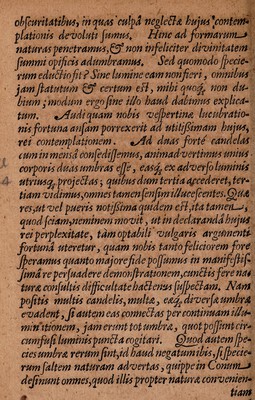 obscuritatibus, in quas culpâ neglectæ hujus contem-
plationis devoluti sumus. Hinc ad formarum
naturas penetramus, & non infeliciter divinitatem
summi opificis adumbramus. Sed quomodo specie-
rum eductio fit? Sine lumine eam non fieri, omnibus
jam statutum & certum est, mihi quoq, non du-
bium; modum ergo sine illo haud dabimus explica-
tum. Audi quam nobis vespertinæ lucubratio-
nis fortuna ansam porrexerit ad utilissimam hujus,
rei contemplationem. Ad duas fortè candelas
cum in mensâ consedissemus, animadvertimus unius
corporis duas umbras esse, easq, ex adverso luminis
utriusq, projectas; quibus dum tertia accederet, ter-
tiam vidimus, omnes tamen sensim illucescentes. Quæ
res, ut vel pueris notissima quidem est, ita tamen,
quod sciam, neminem movit, ut in declarandâ hujus
rei perplexitate, tàm optabili vulgaris argumenti
fortunâ uteretur, quam nobis tanto feliciorem fore
speramus quanto majore fide possumus in manifestis-
simâ re persuadere demonstrationem, cunctis fere na-
turæ consultis difficultate hactenus suspectam. Nam
positis multis candelis, multæ, eæq, diversæ umbræ
evadent, si autem eas connectas per continuam illu-
minationem, jam erunt tot umbræ, quot possint cir-
cumfusi luminis puncta cogitari. Quod autem spe-
cies umbræ rerum sint, id haud negatum ibis, si specie-
rum saltem naturam advertas, quippe in Conum
desinunt omnes, quod illis propter naturæ convenien-
tiam